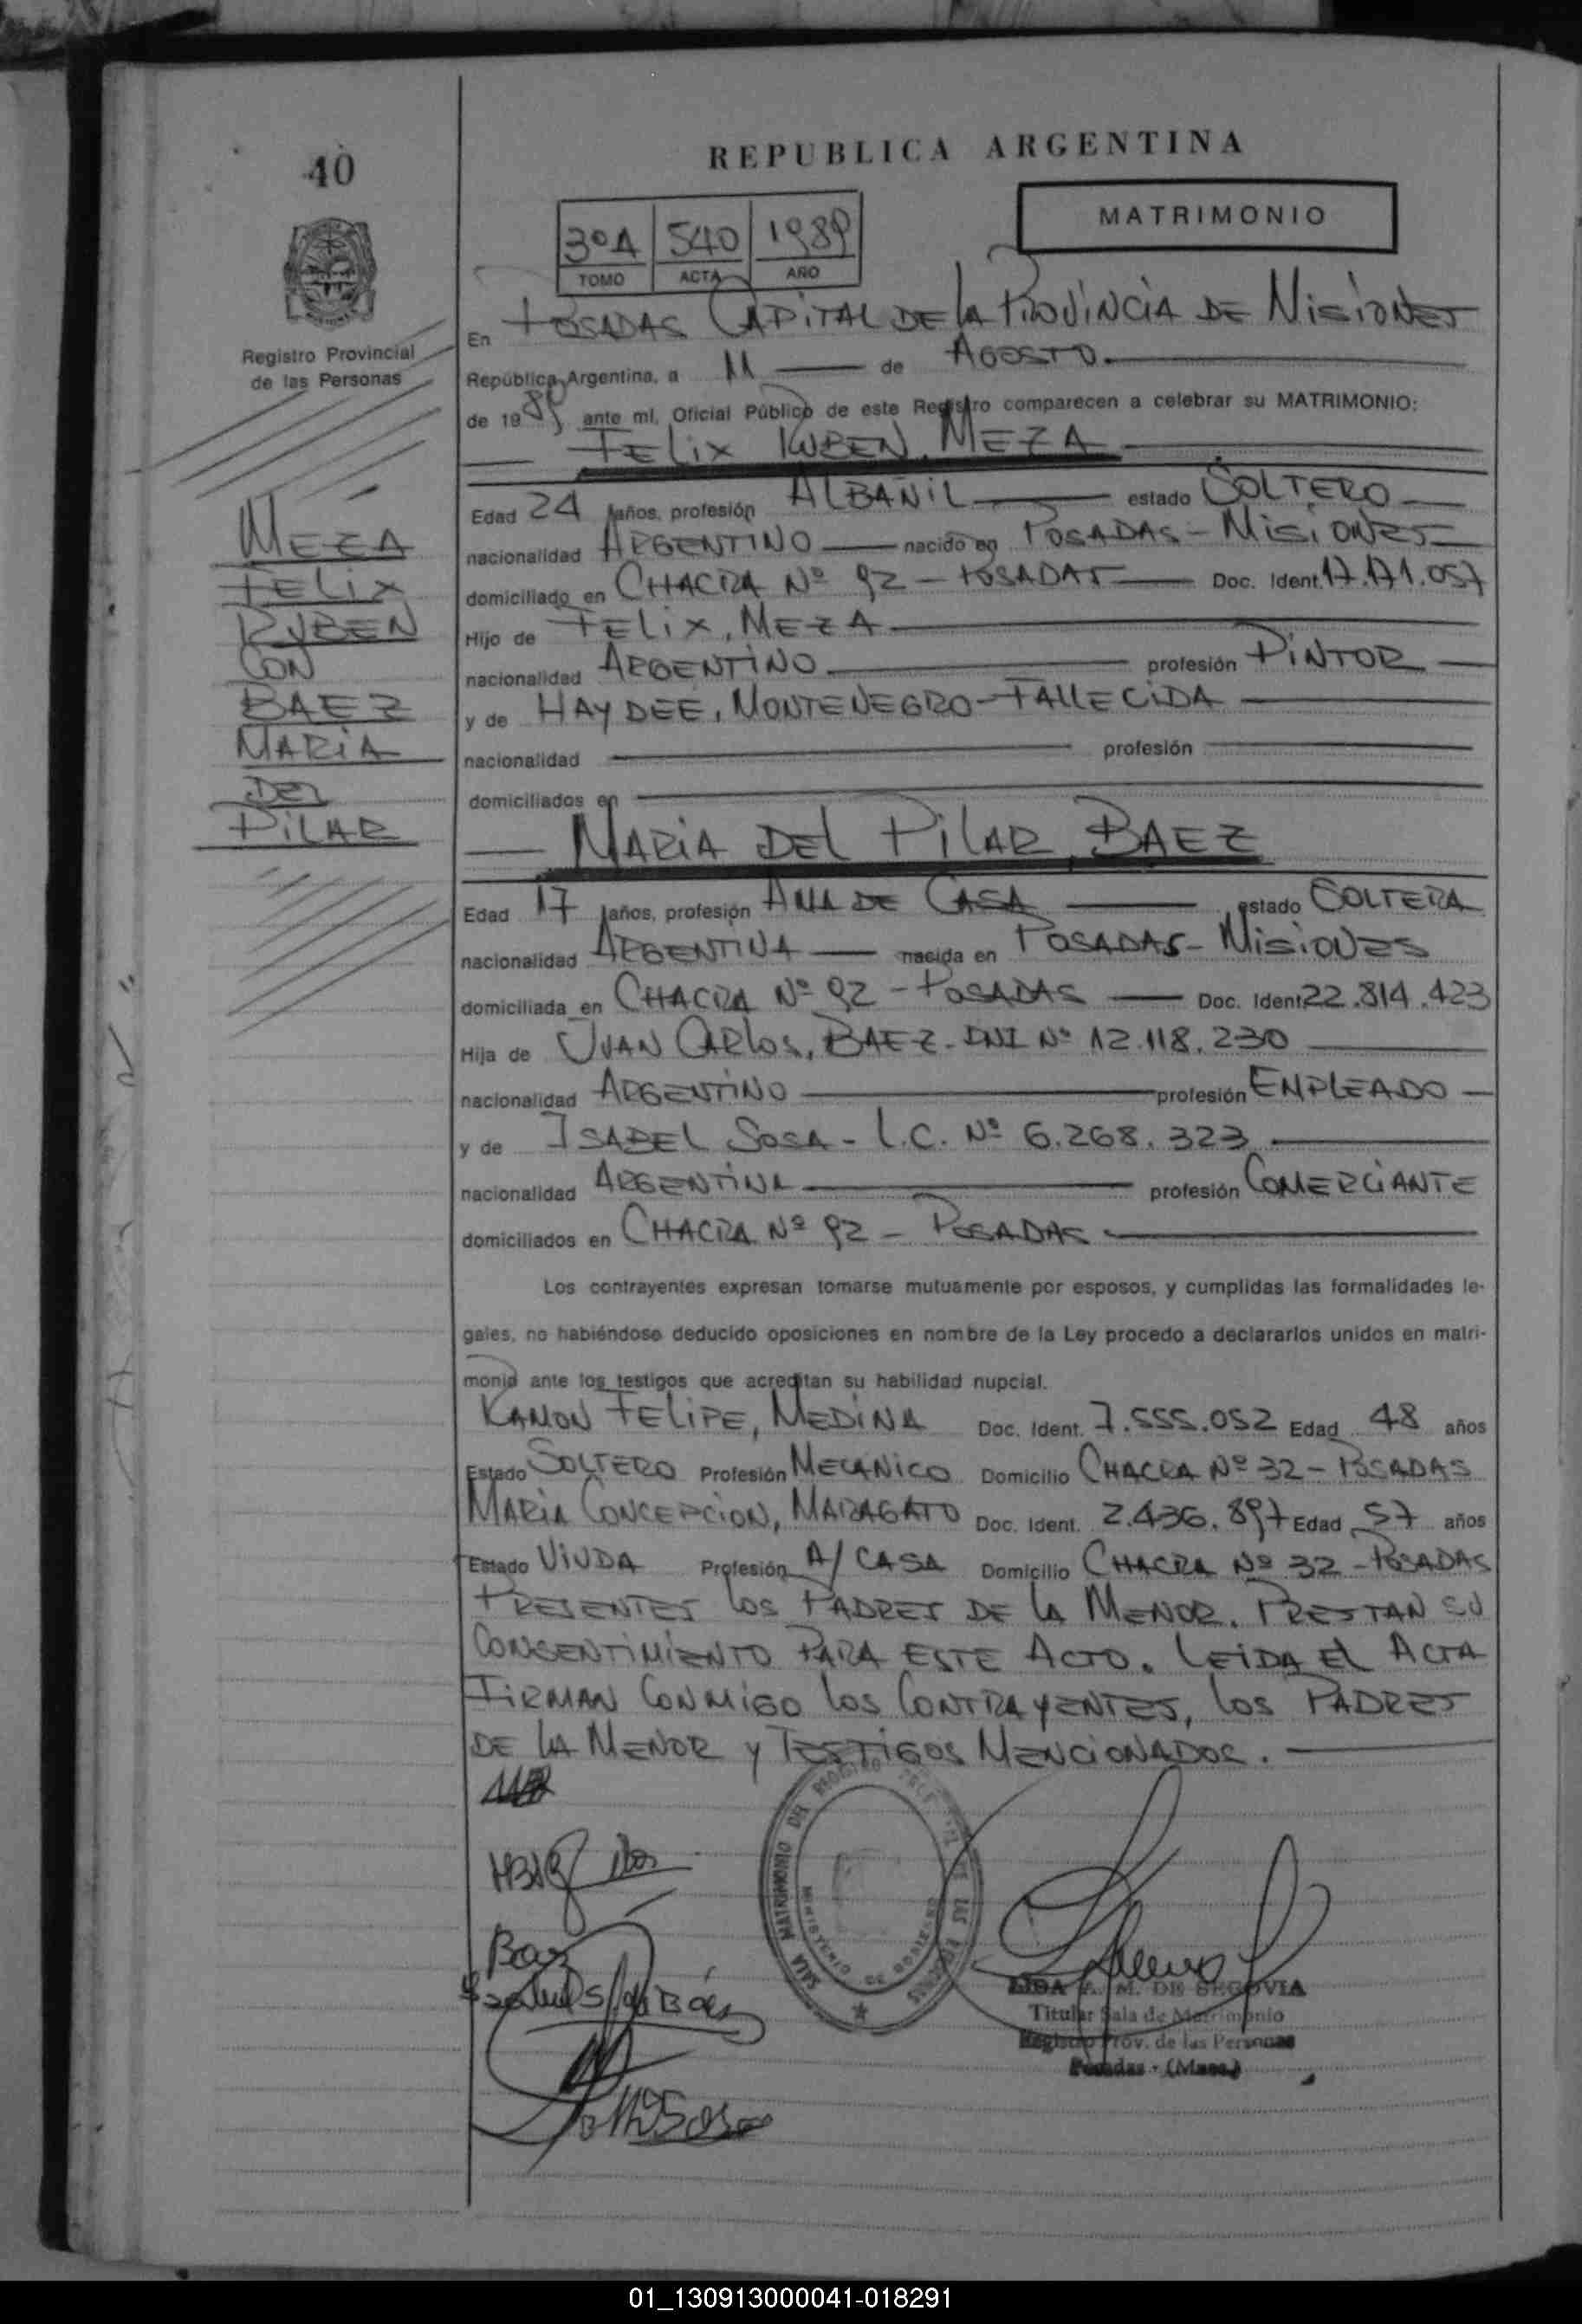 40
REPUBLICA ARGENTINA
MATRIMONIO
3ºA 540 1989
TOMO ACTA AÑO
Registro Provincial
de las Personas
En POSADAS CAPITAL DE LA PROVINCIA DE MISIONES
República Argentina, a 11 de AGOSTO.
de 1989 ante mí, Oficial Público de este Registro comparecen a celebrar su MATRIMONIO:
FELIX RUBEN, MEZA
Edad 24 años, profesión ALBAÑIL estado SOLTERO
nacionalidad ARGENTINO nacido en POSADAS - MISIONES
domiciliado en CHACRA Nº 92 - POSADAS Doc. Ident. 17.171.057
Hijo de FELIX, MEZA
nacionalidad ARGENTINO profesión PINTOR
y de HAYDEE, MONTENEGRO - FALLECIDA
nacionalidad profesión
domiciliados en
MEZA
FELIX
RUBEN
CON
BAEZ
MARIA
DEL
PILAR
MARIA DEL PILAR, BAEZ
Edad 17 años, profesión AMA DE CASA estado SOLTERA
nacionalidad ARGENTINA nacida en POSADAS - MISIONES
domiciliada en CHACRA Nº 92 - POSADAS Doc. Ident. 22.814.423
Hija de JUAN CARLOS, BAEZ - DNI Nº 12.118.230
nacionalidad ARGENTINO profesión EMPLEADO
y de ISABEL SOSA - L.C. Nº 6.268.323
nacionalidad ARGENTINA profesión COMERCIANTE
domiciliados en CHACRA Nº 92 - POSADAS
Los contrayentes expresan tomarse mutuamente por esposos, y cumplidas las formalidades le-
gales, no habiéndose deducido oposiciones en nombre de la Ley procedo a declararlos unidos en matri-
monio ante los testigos que acreditan su habilidad nupcial.
RAMON FELIPE, MEDINA Doc. Ident. 7.555.052 Edad 48 años
Estado SOLTERO Profesión MECANICO Domicilio CHACRA Nº 32 - POSADAS
MARIA CONCEPCION, MARAGATO Doc. Ident. 2.436.897 Edad 57 años
Estado VIUDA Profesión A/ CASA Domicilio CHACRA Nº 32 - POSADAS
PRESENTES LOS PADRES DE LA MENOR. PRESTAN SU
CONSENTIMIENTO PARA ESTE ACTO. LEIDA EL ACTA
FIRMAN CONMIGO LOS CONTRAYENTES, LOS PADRES
DE LA MENOR Y TESTIGOS MENCIONADOS.
SALA MATRIMONIO DEL REGISTRO DE LAS PERSONAS
MINISTERIO DE GOBIERNO
LIDA F. M. DE SEGOVIA
Titular Sala de Matrimonio
Registro Prov. de las Personas
Posadas - (Mnes.)
01_130913000041-018291